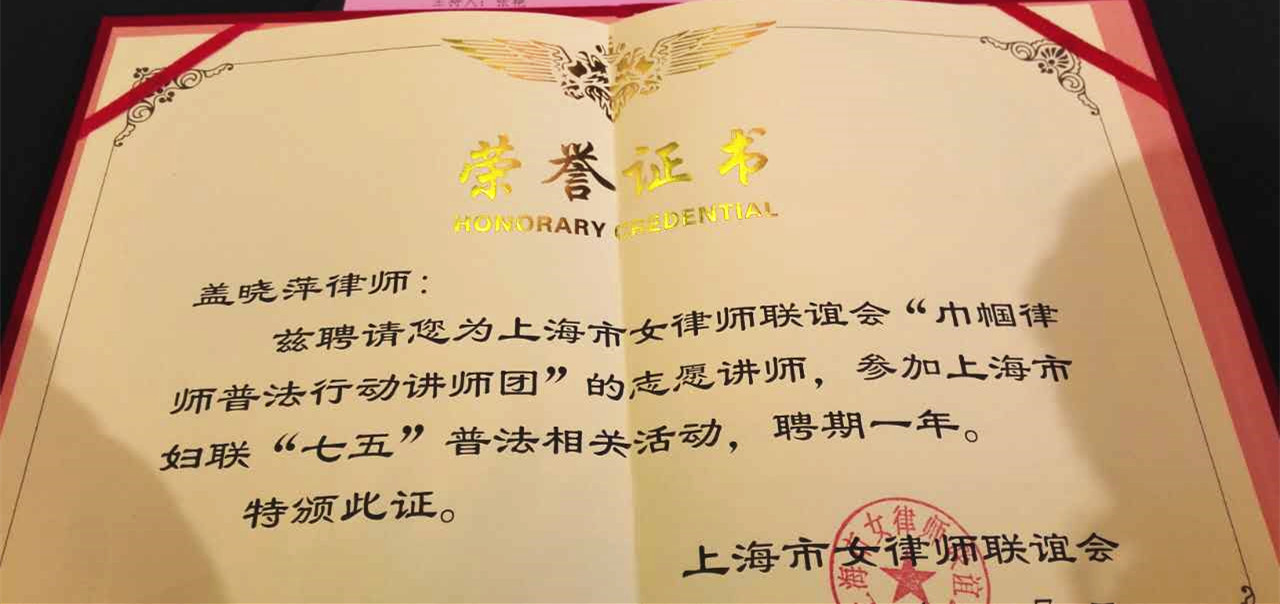 主持人：张艳
荣誉证书
HONORARY CREDENTIAL
盖晓萍律师：
兹聘请您为上海市女律师联谊会“巾帼律
师普法行动讲师团”的志愿讲师，参加上海市
妇联“七五”普法相关活动，聘期一年。
特颁此证。
上海市女律师联谊会